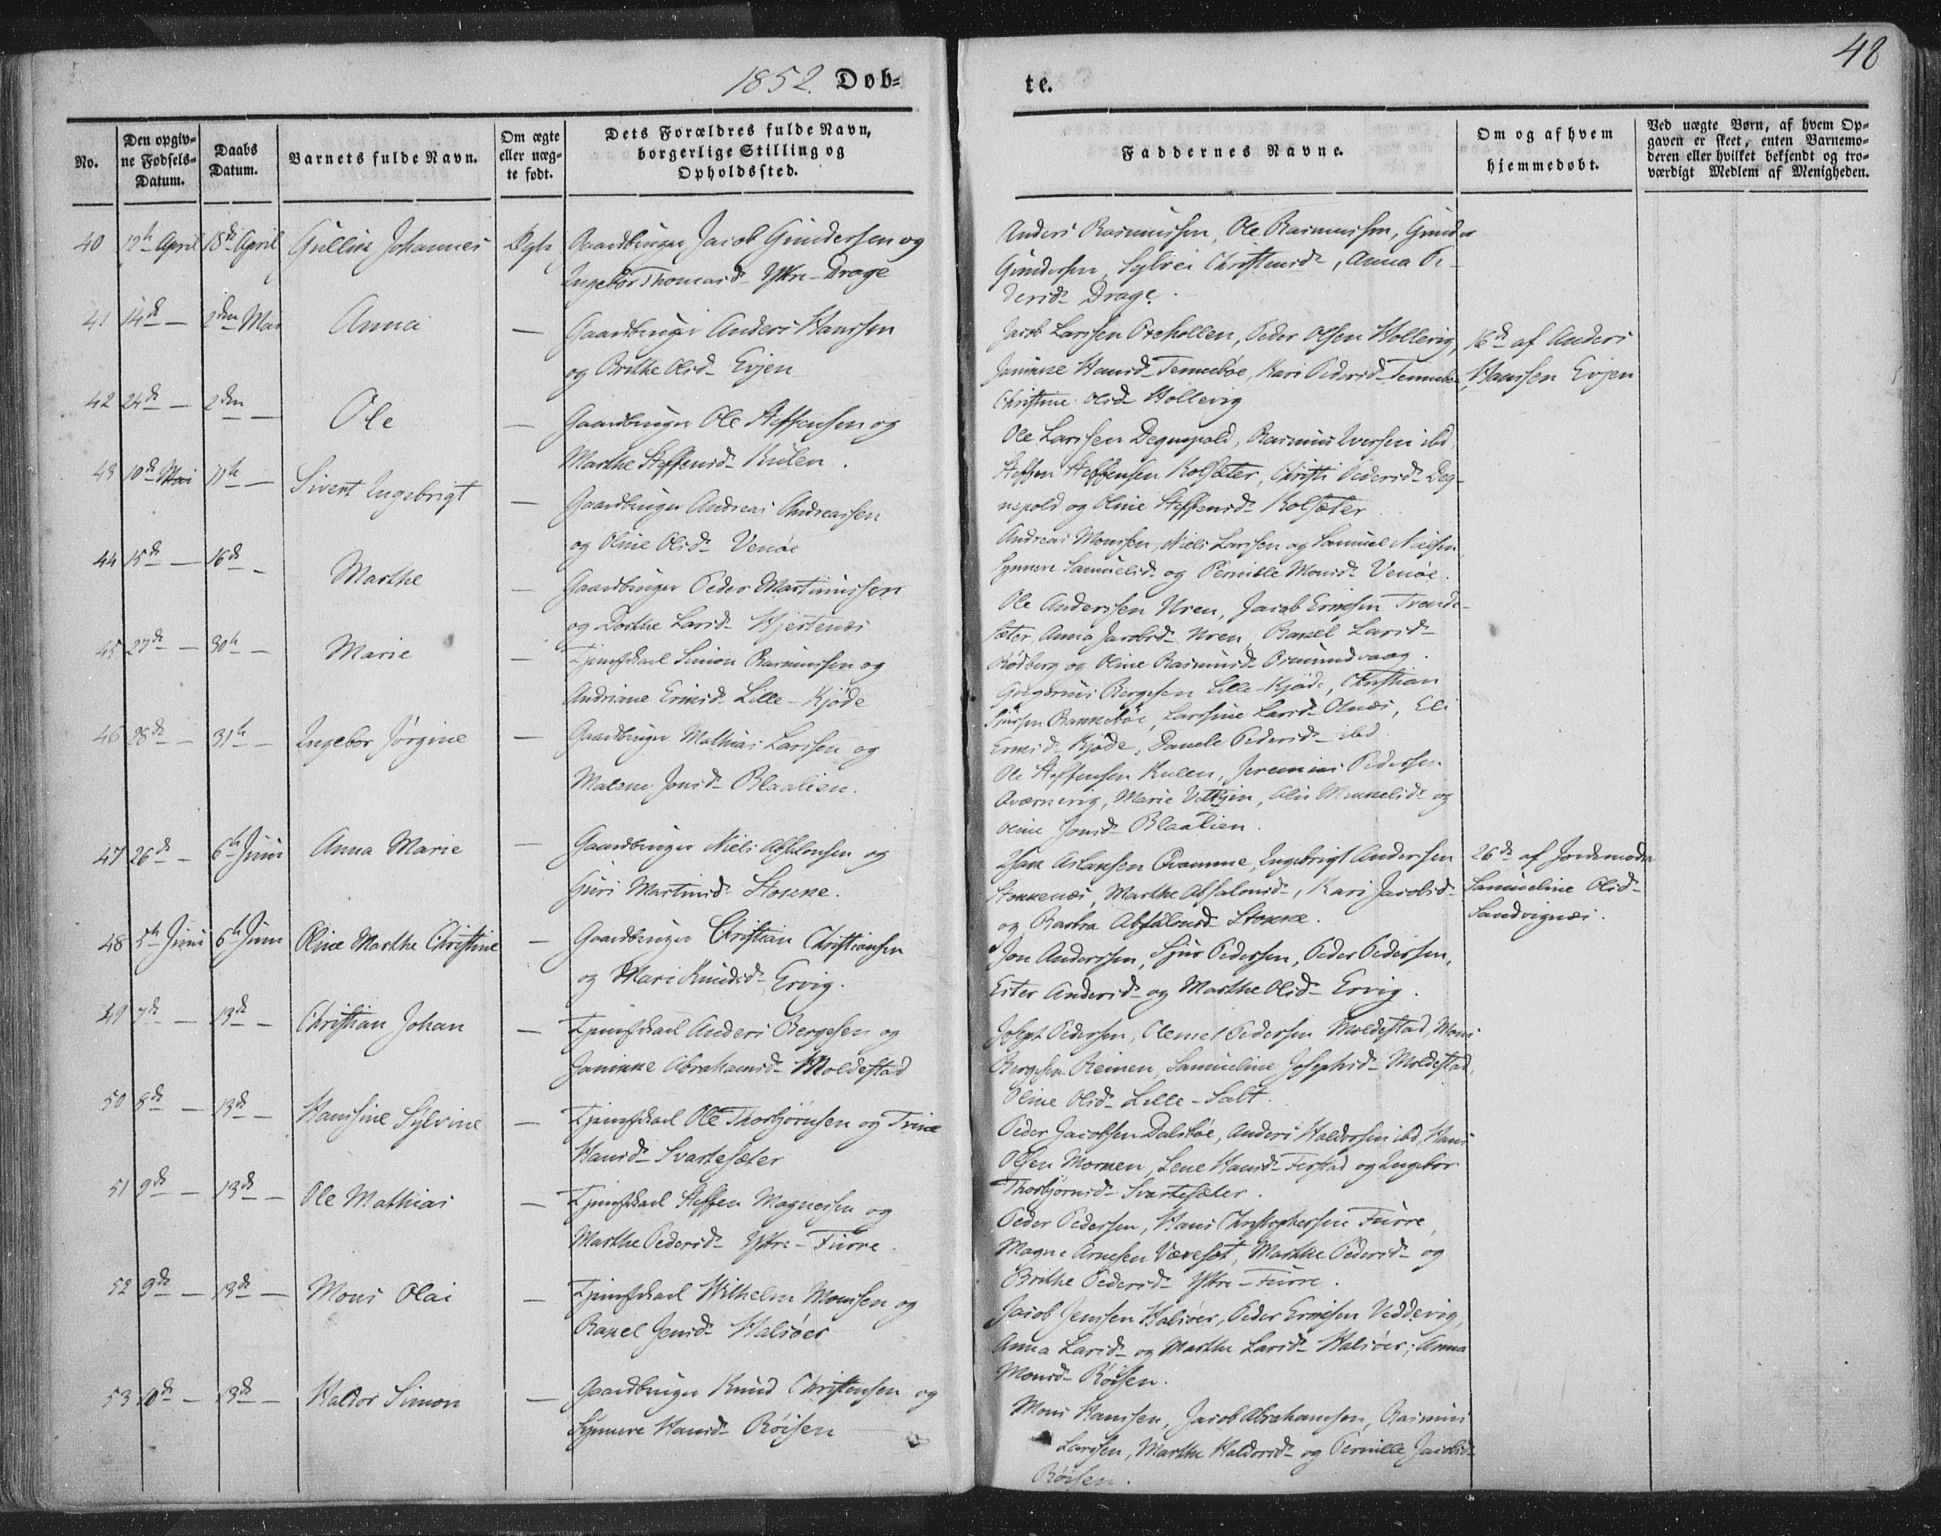 1852. Døb-
te.
48
No.
Den opgiv-
ne Fødsels-
Datum.
Daabs
Datum.
Barnets fulde Navn.
Om ægte
eller uæg-
te født.
Dets Forældres fulde Navn,
borgerlige Stilling og
Opholdssted.
Faddernes Navne.
Om og af hvem
hjemmedøbt.
Ved uægte Børn, af hvem Op-
gaven er skeet, enten Barnemo-
deren eller hvilket bekjendt og tro-
værdigt Medlem af Menigheden.
40 12te April 18de April Johannes Ægte Gaardbruger Jacob Gundersen og
Ingebor Thomasd. Ytre-Drage
Anders Rasmussen, Ole Rasmussen, Gunder
Gundersen, Sylvei Christensd., Anna Pe-
dersd. Drage.
41 14de — 2den Mai Anna — Gaardbruger Anders Hanssen
og Brithe Olsd. Evjen
Jacob Larssen Peder Olsen Hollevig,
Janikke Hansd. Tennebøe, Kari Pedersd. Tennebøe,
Christine Olsd. Hollevig
16de af Anders
Hanssen Evjen
42 24de — 2den — Ole — Gaardbruger Ole Steffensen og
Marthe Steffensd. Kulen.
Ole Larssen Degnepold, Rasmus Iversen ibd,
Steffen Steffensen Kolsæter, Christi Pedersd. Deg-
nepold og Oline Steffensd. Kolsæter.
43 10de Mai 11te — Sivert Ingebrigt — Gaardbruger Andreas Andreassen
og Oline Olsd. Venøe
Andreas Monssen, Niels Larssen og Samuel Nielsen
Synneve Samuelsd. og Pernille Monsd. Venøe.
44 15de — 16de — Marthe — Gaardbruger Peder Martinussen
og Dorthe Larsd. Hjertenæs
Ole Anderssen Uren, Jacob Ernesen Trende-
sæter, Anna Jacobsd. Uren, Rakel Larsd.
Rødberg og Oline Rasmusd. Osmundvaag.
45 27de — 30te — Marie — Tjenestkarl Simon Rasmussen og
Andriane Ernsd. Lille-Kjøde
Gregorius Børgesen Lille-Kjøde, Christian
Sjursen Bakkebøe, Larsine Larsd. Osnæs, Eli
Ernsd. Kjøde, Danele Pedersd. ibd.
46 28de — 31te — Ingebor Jørgine — Gaardbruger Mathias Larssen og
Malene Jonsd. Blaalien.
Ole Steffensen Kulen, Jeremias Pedersen
Marie og
Oline Jonsd. Blaalien.
47 26de — 6te Juni Anna Marie — Gaardbruger Niels Absalonsen og
Guri Martinusd. Stokke.
Isak Aslaksen Qvamme, Ingebrigt Andersen
Stokkenæs, Marthe Absalonsd., Kari Jacobsd.
og Barbra Absalonsd. Stokke.
26de af Jordemoder
Samueline Olsd.
Sandvignæs.
48 5te Juni 6te Juni Oline Marthe Christine — Gaardbruger Christian Christiansen
og Mari Knudsd. Ervig.
Jon Anderssen, Sjur Pedersen, Peder Pedersen,
Ester Andersd. og Marthe Olsd. Ervig.
49 7de — 13de — Christian Johan — Tjenestkarl Anders Børgesen og
Janikke Abrahamsd. Moldestad
Joseph Pedersen, Clemet Pedersen Moldestad, Mons
Børgesen Reinen, Samueline Josephsd. Moldestad,
Oline Olsd. Lille-Salt.
50 8de — 13de — Hanssine Sylvine — Tjenestkarl Ole Thorbjørnsen og Trine
Hansd. Svartesæter
Peder Jacobsen Dalsbøe, Anders Haldorsen ibd, Hans
Olsen Morken, Lene Hansd. Ferstad og Ingebor
Thorbjørnsd. Svartesæter.
51 9de — 13de — Ole Mathias — Tjenestkarl Steffen Magnesen og
Marthe Pedersd. Ytre-Furre.
Peder Pedersen, Hans Christophersen Furre,
Magne Arnesen Marthe Pedersd. og
Brithe Pedersd. Ytre-Furre.
52 9de — 13de — Mons Olai — Tjenestkarl Wilhelm Monssen og
Rakel Jensd. Halsøer
Jacob Jenssen Halsøer, Peder Ernesen Veddevig,
Anna Larsd. og Marthe Larsd. Halsøer, Anna
Monsd. Røisen.
53 10de — 13de — Haldor Simon — Gaardbruger Knud Christensen og
Synneve Hansd. Røisen
Mons Hanssen, Jacob Abrahamsen, Rasmus
Larssen, Marthe Haldorsd. og Pernille Jacobsd.
Røisen.